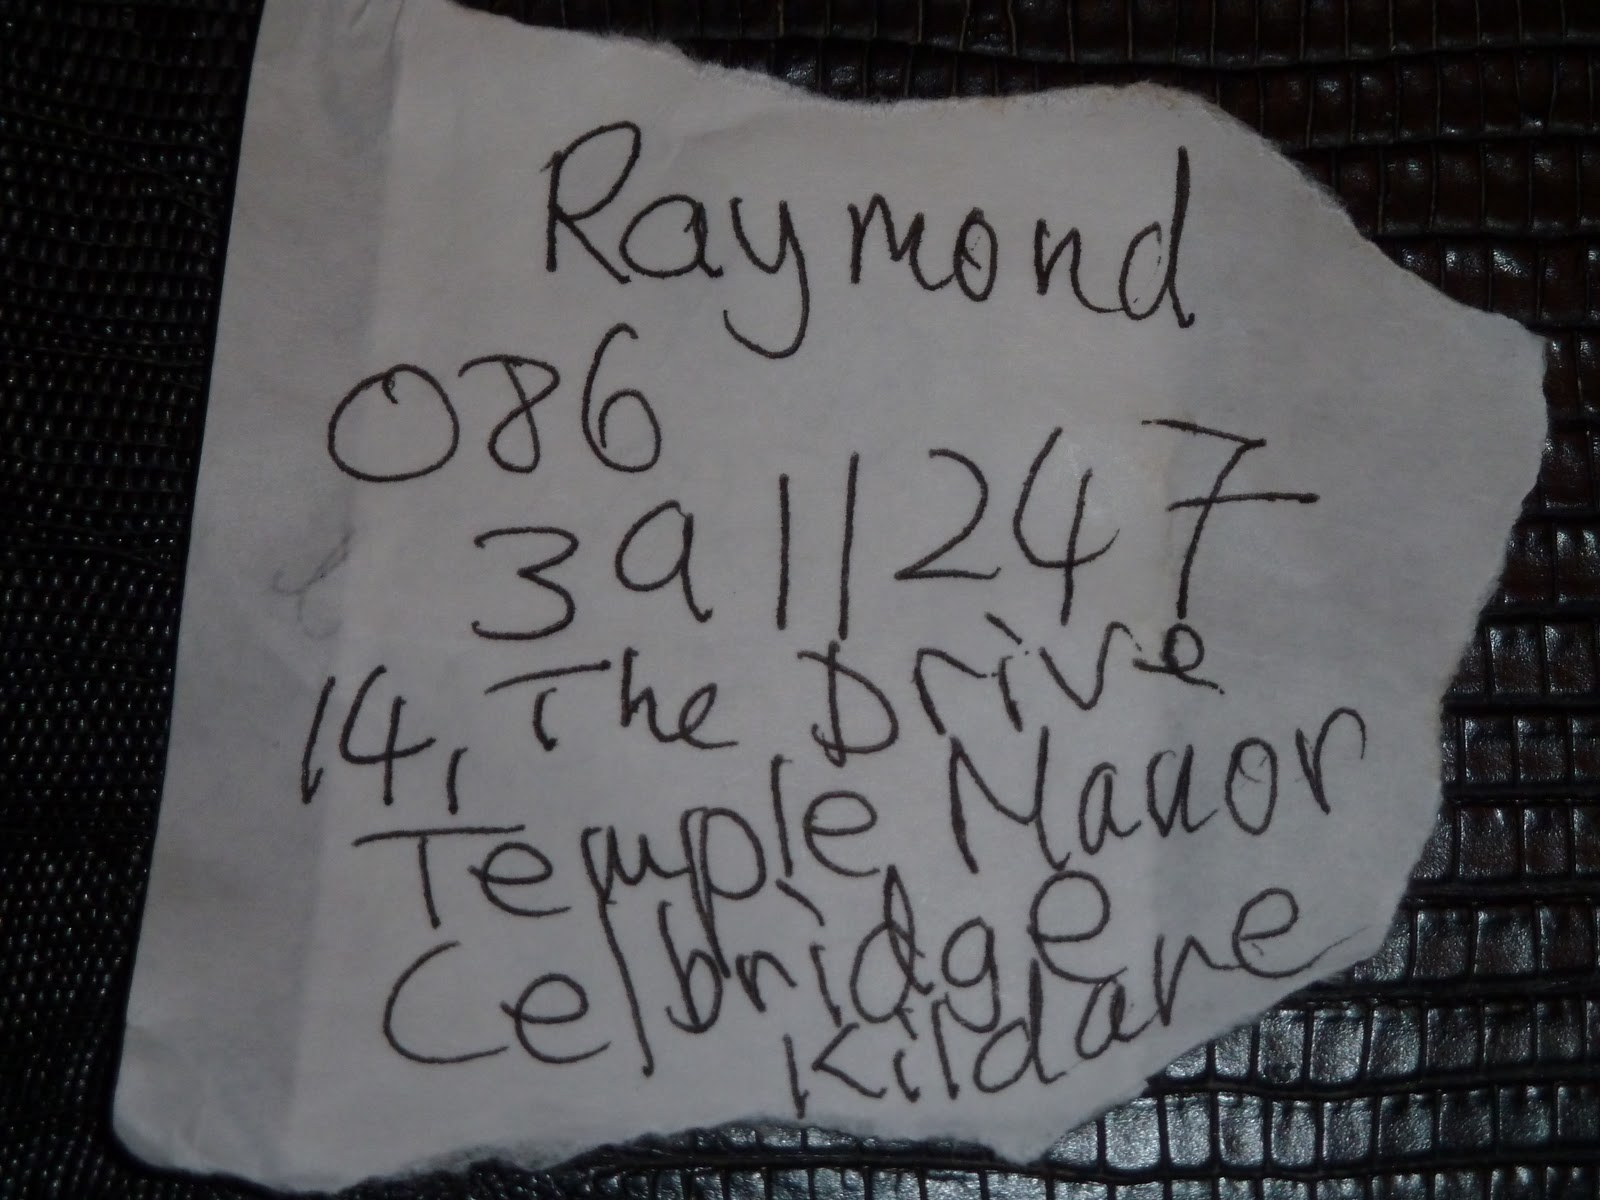 Raymond
086
3911247
14, The Drive
Temple Manor
Celbridge
Kildare